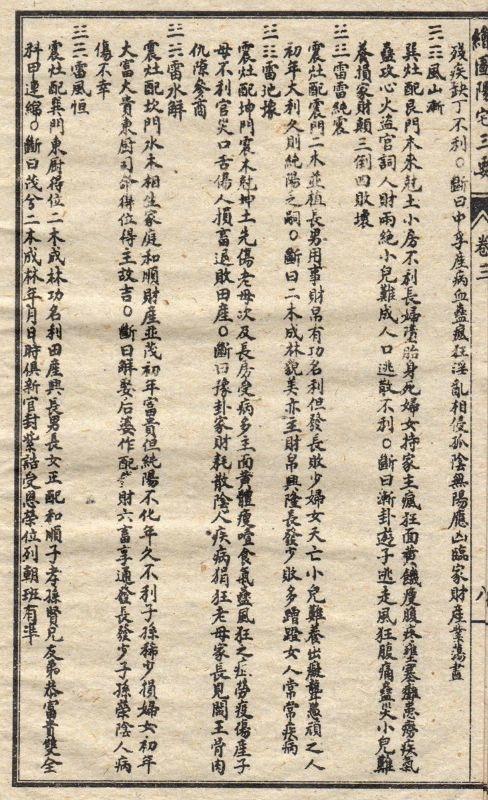 繪圖陽宅三要 卷三 八
殘疾缺丁不利○斷曰中孚産病血蠱瘋狂淫亂相侵孤陰無陽應凶臨家財産業蕩盡
風山漸
巽灶配艮門木來尅土小房不利長婦墮胎身死婦女持家主瘋狂面黃饑瘦腹疼壅塞癱患癆疾氣
蠱攻心火盜官詞人財兩絕小兒難成人口逃散不利○斷曰漸卦遊子逃走風狂腹痛蠱災小兒難
養損家財顛三倒四敗壞
雷雷純震
震灶配震門二木並植長男用事財帛有功名利但發長敗少婦女夭亡小兒難養出癡聾愚頑之人
初年大利久則純陽之嗣○斷曰二木成林貌美亦主財帛興隆長發少敗多蹭蹬女人常常疾病
雷地豫
震灶配坤門震木尅坤土先傷老母次及長房受病多主面黃體瘦噎食氣蠱風狂之症勞疫傷産子
母不利官災口舌傷人損畜退敗田産○斷曰豫卦家財耗散陰人疾病猖狂老母家長見閻王骨肉
仇隙參商
雷水解
震灶配坎門水木相生家庭和順財産並茂初年富貴但純陽不化年久不利子孫稀少損婦女初年
大富大貴東厨司命得位得主故吉○斷曰解娶后婆作配 財六畜享通發長發少子孫榮陰人病
傷不幸
雷風恒
震灶配巽門東厨得位二木成林功名利田産興長男長女正配和順子孝孫賢兄友弟恭富貴雙全
科甲連綿○斷曰茂兮二木成林年月日時俱新官封紫誥受恩榮位列朝班有準